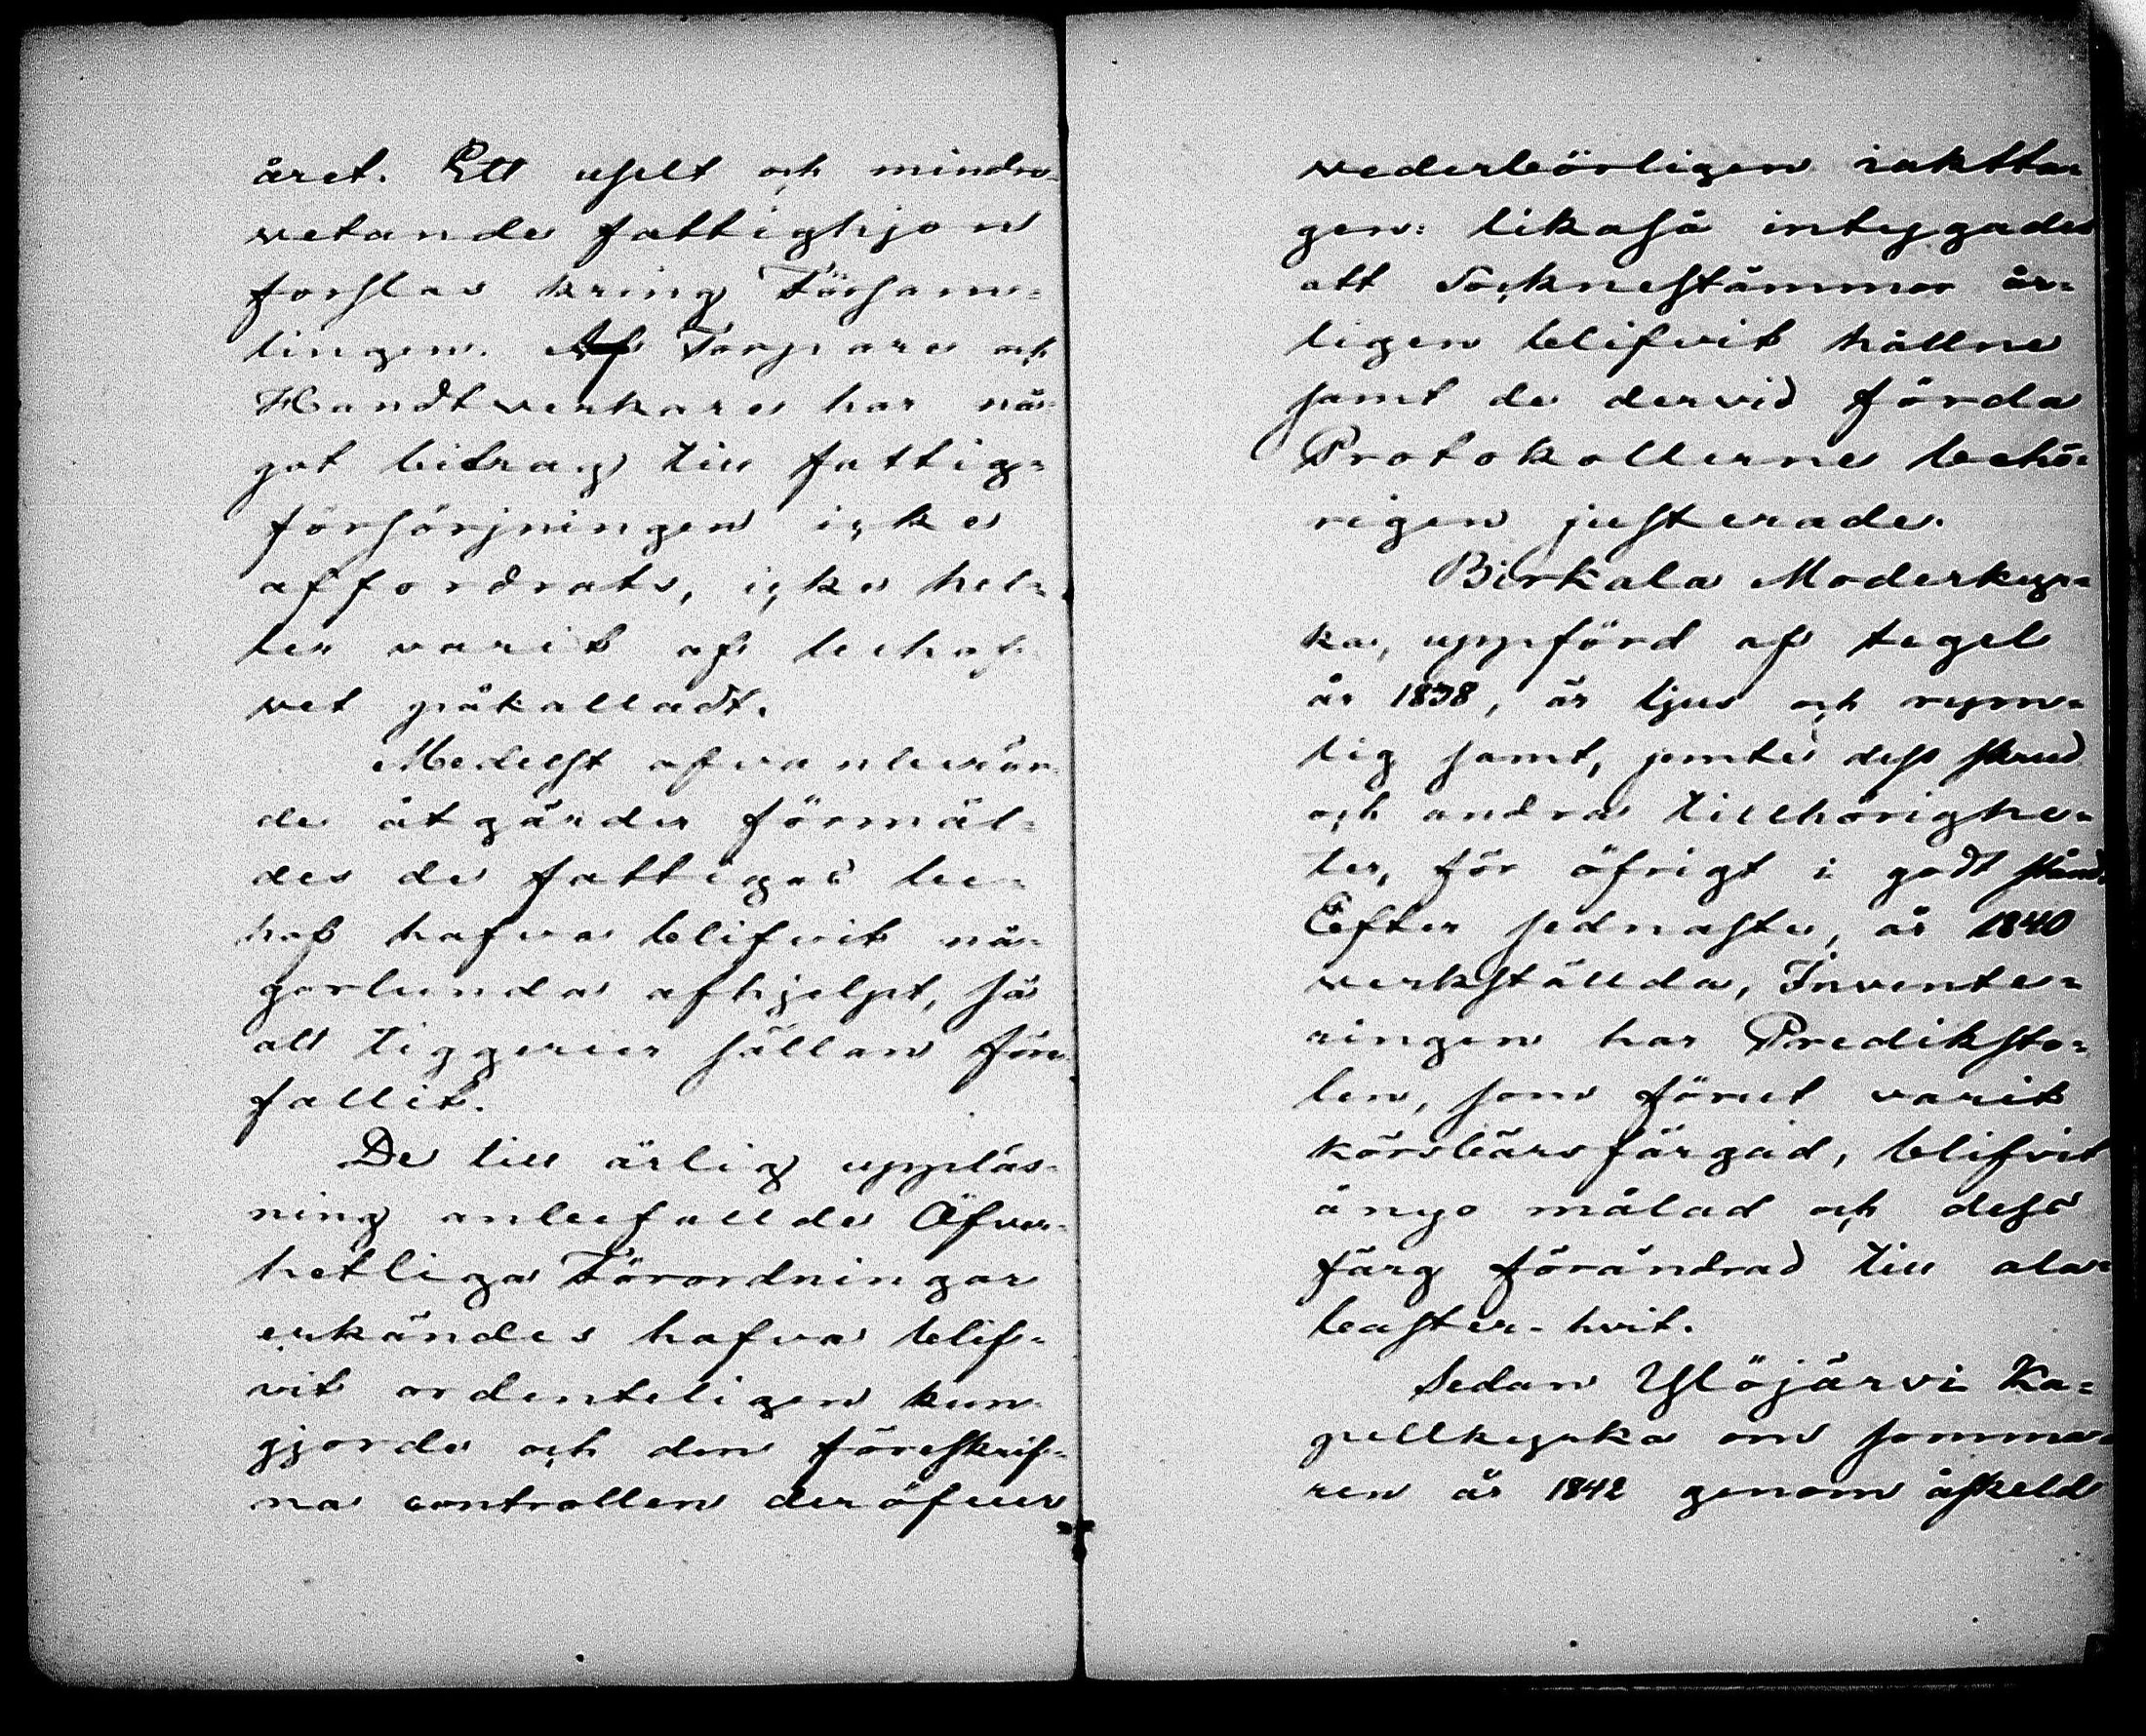 året. Ett uselt och mindre
vetande fattighjon
forslas kring Försam=
lingen. Af Torpare och
Handtverkare har nå=
got bidrag till fattig=
försörjningen icke
affordrats, icke hel=
ler varit af behof=
vet påkalladt.
Medelst ofvanberör=
de åtgärder förmäl=
des de fattigas be=
hof hafva blifvit nå=
gorlunda afhjelpt, så
att tiggerier sällan före
fallit.
De till årlig uppläs=
ning anbefallde Öfver=
hetliga Förordningar
erkändes hafva blif=
vit ordenteligen kun
gjorde och den föreskrif=
na controllen deröfver
vederbörligen iaktta=
gen: likaså intygades
att Socknestämmor år=
ligen blifvit hållne
samt de dervid förda
Protokollerne behö=
rigen justerade.
Birkala Moderkyr=
ka, uppförd af tegel
år 1838, är ljus och rym=
lig samt, jemte dess skrud
och andra tillhörighe=
ter, för öfrigt i godt stånd.
Efter sednaste, år 1840
verkställda, Invente=
ringen har Prediksto=
len, som förut varit
körsbärsfärgad, blifvit
ånyo målad och dess
färg förändrad till ala=
baster-hvit.
Sedan Ylöjärvi Ka=
pellkyrka om somma=
ren år 1842 genom åskeld